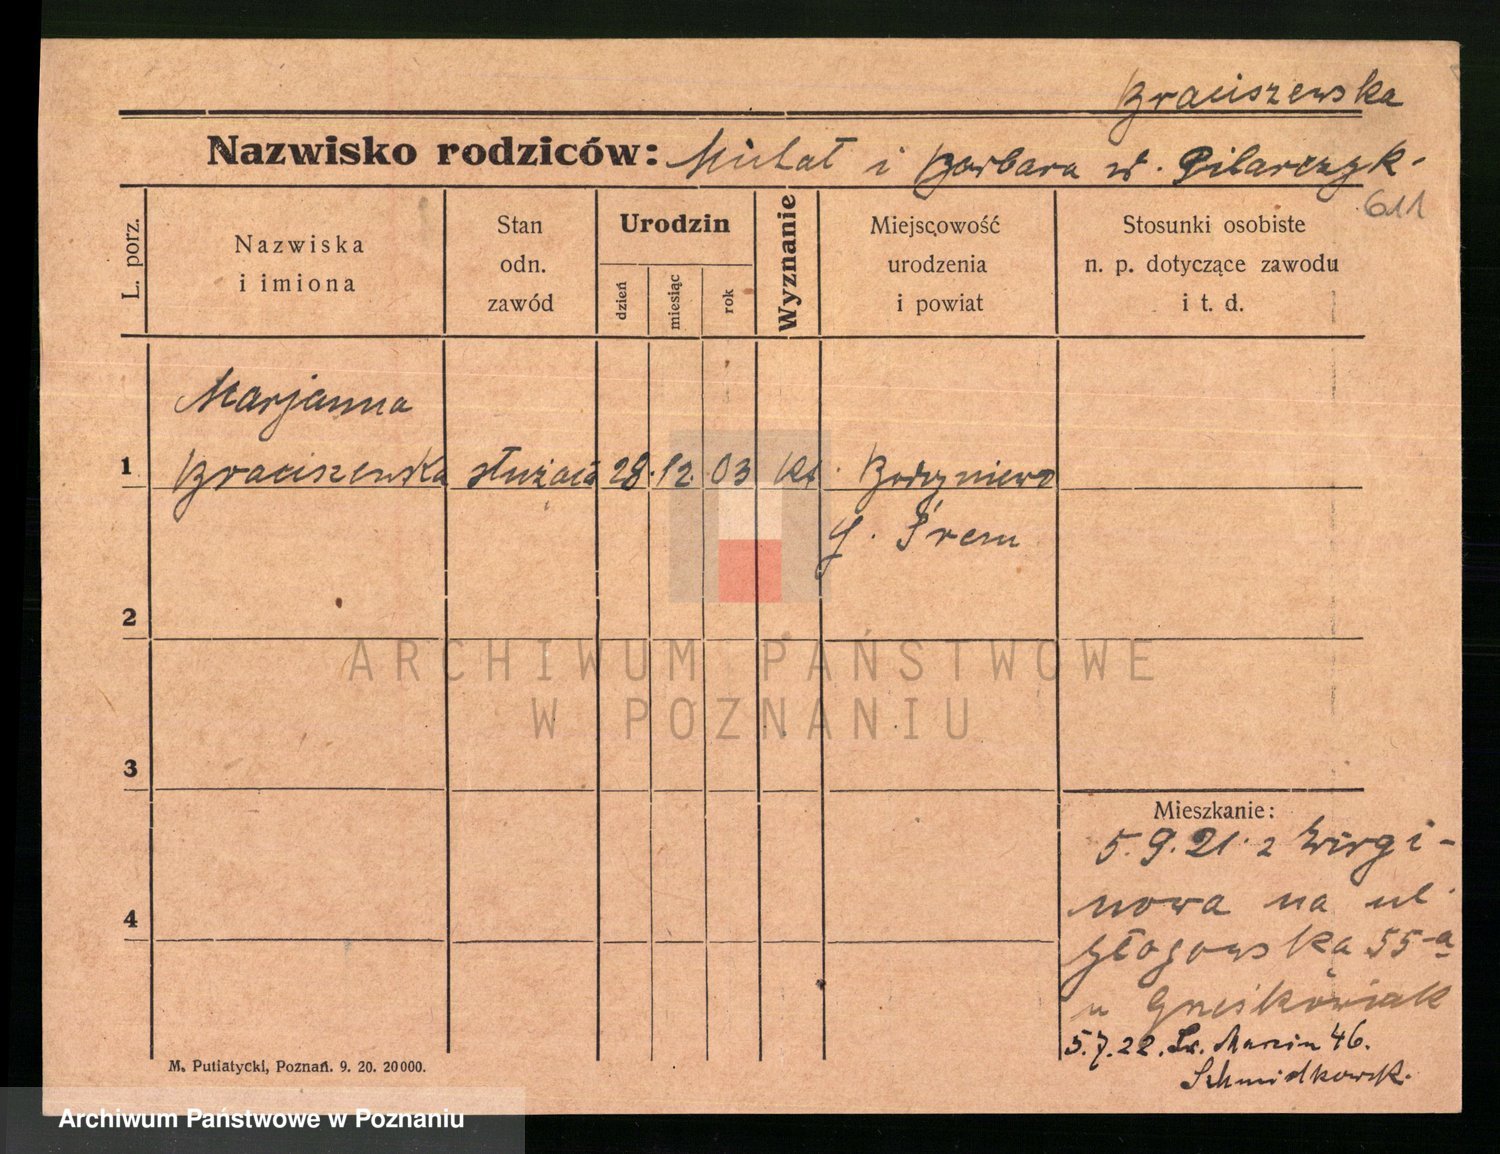 Braciszewska
Nazwisko rodziców: Michał i Barbara z d. Pilarczyk
611
L. porz.
Nazwiska
i imiona
Stan
odn.
zawód
Urodzin
dzień
miesiąc
rok
Wyznanie
Miejscowość
urodzenia
i powiat
Stosunki osobiste
n. p. dotyczące zawodu
i t. d.
Marjanna
1 Braciszewska służąca 28. 12. 03 kt.
Śrem
2
3
4
Mieszkanie:
5.9.21. z
na ul.
Głogowska 55-a
u
5.7.22. Św. Marcin 46.
Schmidkowsk.
M. Putiatycki, Poznań. 9. 20. 20000.
ARCHIWUM PAŃSTWOWE
W POZNANIU
Archiwum Państwowe w Poznaniu